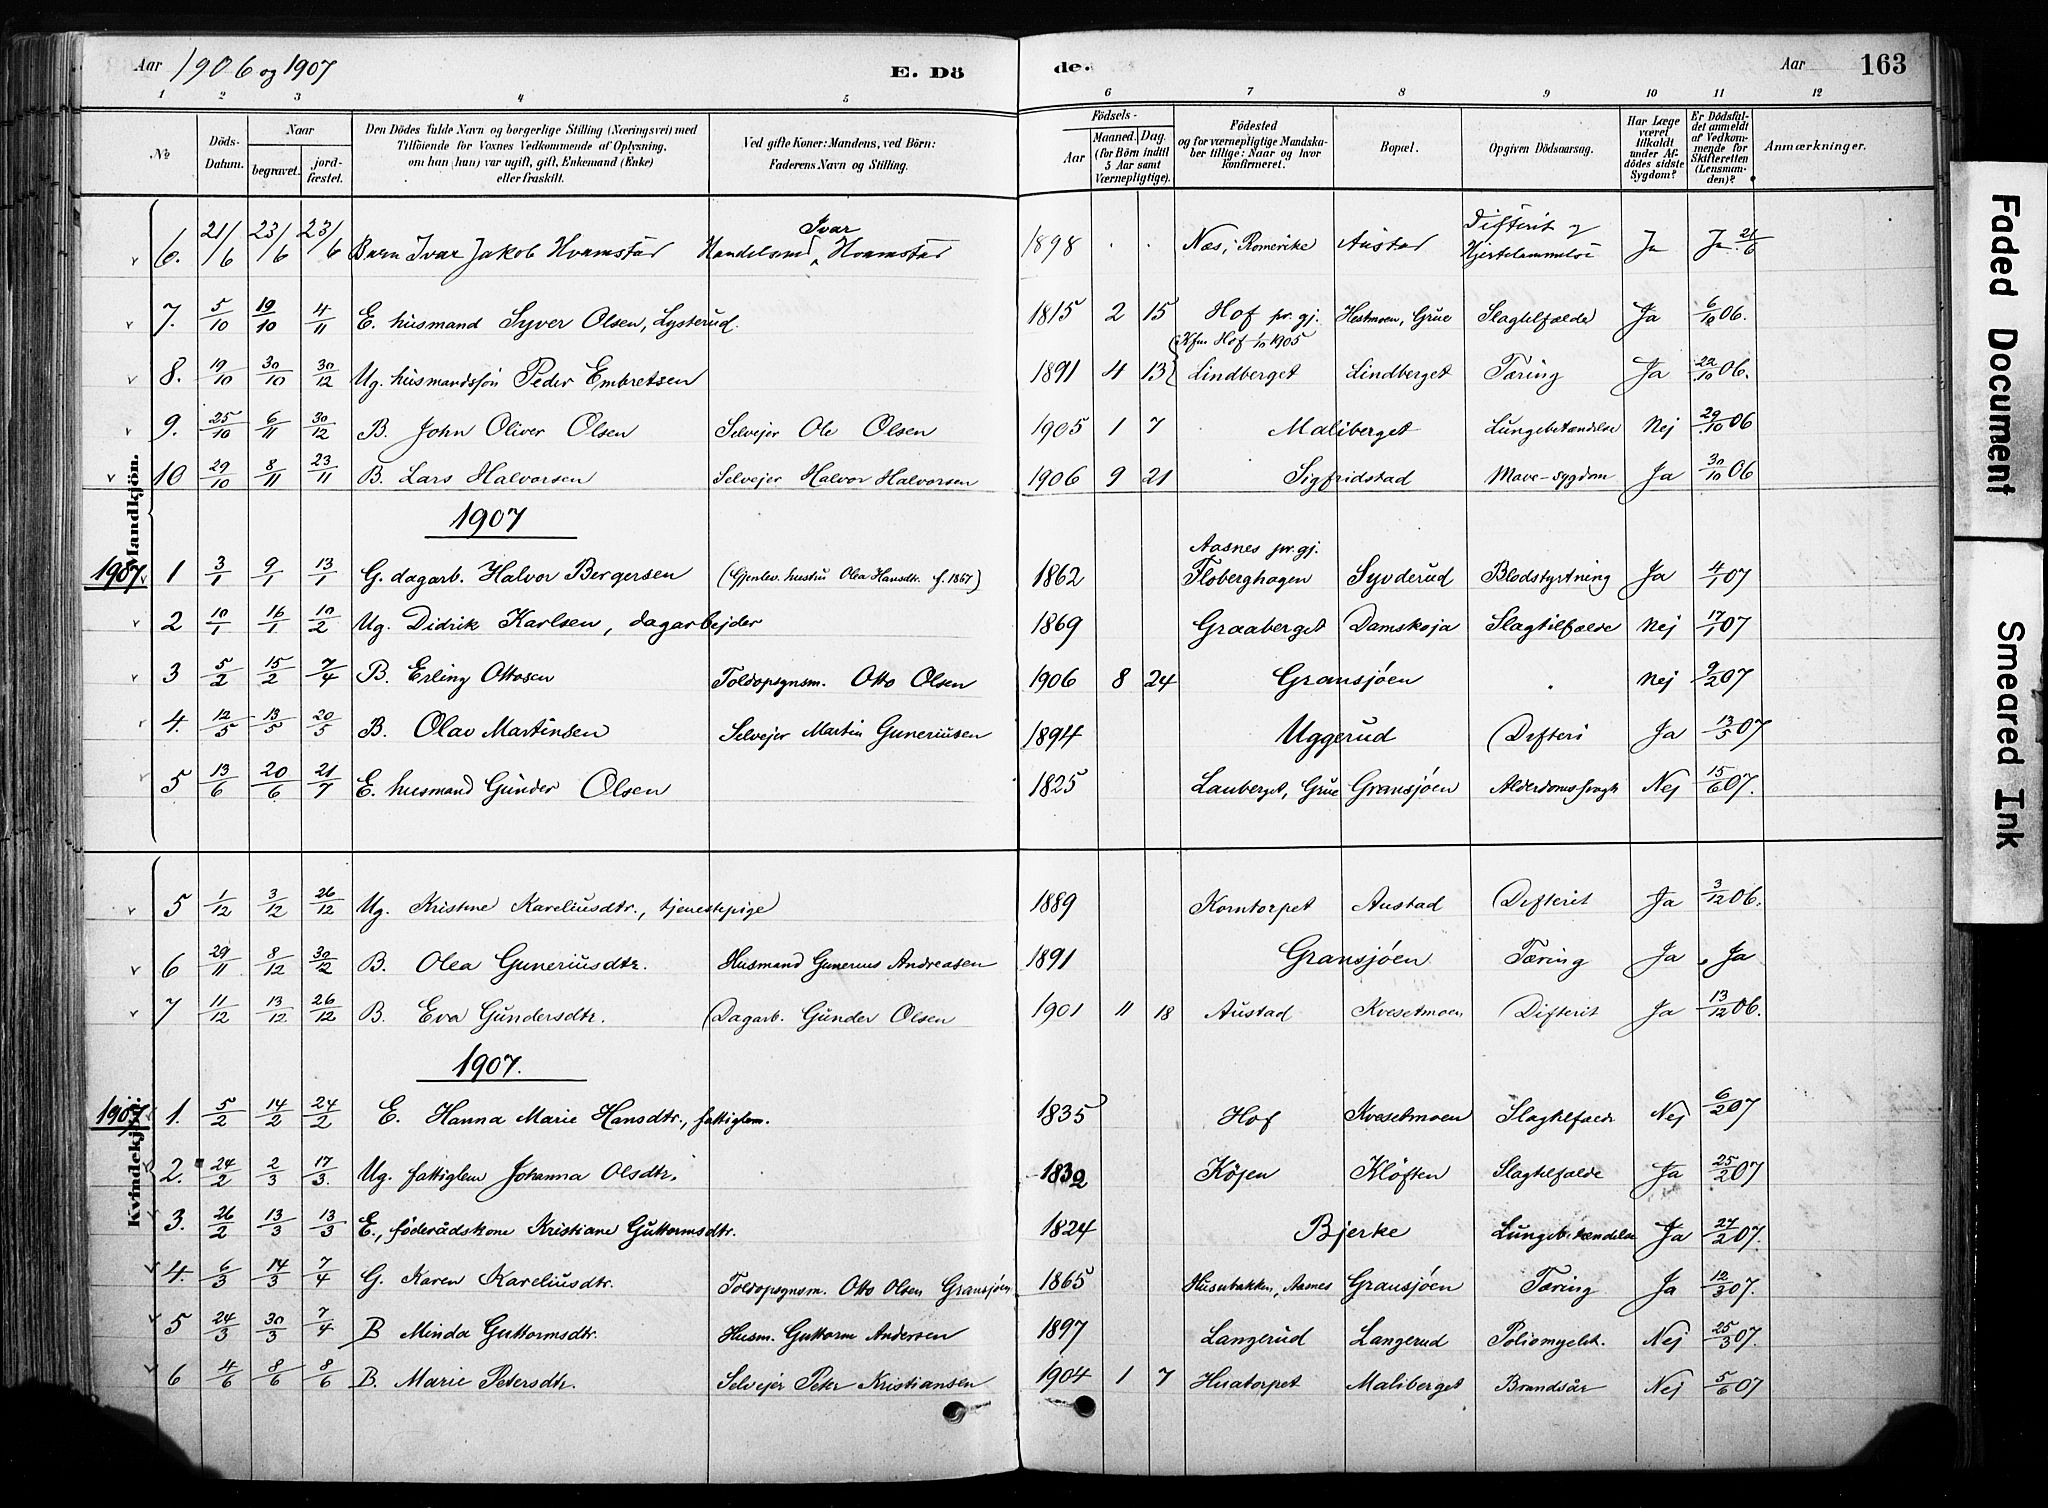 Aar 1906 og 1907 E. Dö de. Aar 163
1 2 3 4 5 6 7 8 9 10 11 12
No Döds-Datum. Naar begravet. jord-fæstet. Den Dödes fulde Navn og borgerlige Stilling (Næringsvei) med Tilföiende for Voxnes Vedkommende af Oplysning, om han (hun) var ugift, gift, Enkemand (Enke) eller fraskilt. Ved gifte Koner: Mandens, ved Börn: Faderens Navn og Stilling. Födsels- Aar Maaned. Dag. (for Börn indtil 5 Aar samt Værnepligtige). Födested og for værnepligtige Mandskaber tillige: Naar og hvor konfirmeret. Bopæl. Opgiven Dödsaarsag. Har Læge været tilkaldt under Afdödes sidste Sygdom? Er Dödsfaldet anmeldt af Vedkommende for Skifteretten (Lensmanden)? Anmærkninger.
Mandkjön.
6. 21/6 23/6 23/6 Barn Ivar Jakob Hvamstad Handelsmd Ivar Hvamstad 1898 Næs, Romerike Austad Difterit & Hjertelammelse Ja Ja 21/6
7. 5/10 19/10 4/11 E. husmand Syver Olsen, Lysterud. 1815 2 15 Hof pr. gj. Hestmoen, Grue Slagtilfælde Ja 6/10 06.
8. 19/10 30/10 30/12 Ug. husmandssön Peder Embretsen 1891 4 13 (Kfm Hof 1/10 1905 Lindberget Lindberget Tæring Ja 22/10 06.
9. 25/10 6/11 30/12 B. John Oliver Olsen Selvejer Ole Olsen 1905 1 7 Maliberget Lungebetændelse Nej 29/10 06
10 29/10 8/11 23/11 B. Lars Halvorsen Selvejer Halvor Halvorsen 1906 9 21 Sigfridstad Mave-sygdom Ja 30/10 06
1907
1907 1 3/1 9/1 13/1 G. dagarb. Halvor Bergersen (Gjenlev. hustru Olea Hansdtr. f. 1867) 1862 Aasnes pr. gj. Floberghagen Syvderud Blodstyrtning Ja 4/1 07
2 10/1 16/1 10/2 Ug. Didrik Karlsen, dagarbejder 1869 Graaberget Damskoja Slagtilfælde Nej 17/1 07
3 5/2 15/2 7/4 B. Erling Ottosen Toldopsynsm. Otto Olsen 1906 8 24 Gransjøen Nej 9/2 07
4. 12/5 13/5 20/5 B. Olav Martinsen Selvejer Martin Guneriusen 1894 Uggerud Difteri Ja 13/5 07
5 13/6 20/6 21/7 E. husmand Gunder Olsen 1825 Lauberget, Grue Gransjøen Nej 15/6 07.
Kvindekjön.
5 1/12 3/12 26/12 Ug. Kristine Kareliusdtr., tjenestepige 1889 Korntorpet Austad Difterit Ja 3/12 06.
6 29/11 8/12 30/12 B. Olea Guneriusdtr. Husmand Gunerius Andreasen 1891 Gransjøen Tæring Ja Ja
7 11/12 13/12. 26/12 B. Eva Gundersdtr. Dagarb. Gunder Olsen 1901 11 18 Austad Kvesetmoen Difterit Ja 13/12 06.
1907.
1907 1. 5/2 14/2 24/2 E. Hanna Marie Hansdtr., fattiglem. 1835 Hof Kvesetmoen Slagtilfælde Nej 6/2 07
2. 24/2 2/3 17/3. Ug. fattiglem Johanna Olsdtr. 1832 Köjen Klöften Slagtilfælde Ja 25/2 07
3. 26/2 13/3 13/3 E., föderådskone Kristiane Guttormsdtr. 1824 Bjerke Lungebetændelse Ja 27/2 07.
4. 6/3 14/3 7/4 G. Karen Kareliusdtr. Toldopsynsm. Otto Olsen Gransjøen 1865 Husubakken, Aasnes Gransjøen Tæring Ja 12/3 07.
5 24/3 30/3 7/4 B Minda Guttormsdtr. Husm. Guttorm Andersen 1897 Langerud Langerud Poliomyelit. Nej 25/3 07.
6 4/6 8/6 8/6 B. Marie Petersdtr. Selvejer Peter Kristiansen 1904 1 7 Huatorpet Maliberget Brandsår Nej 5/6 07
Faded Document
Smeared Ink